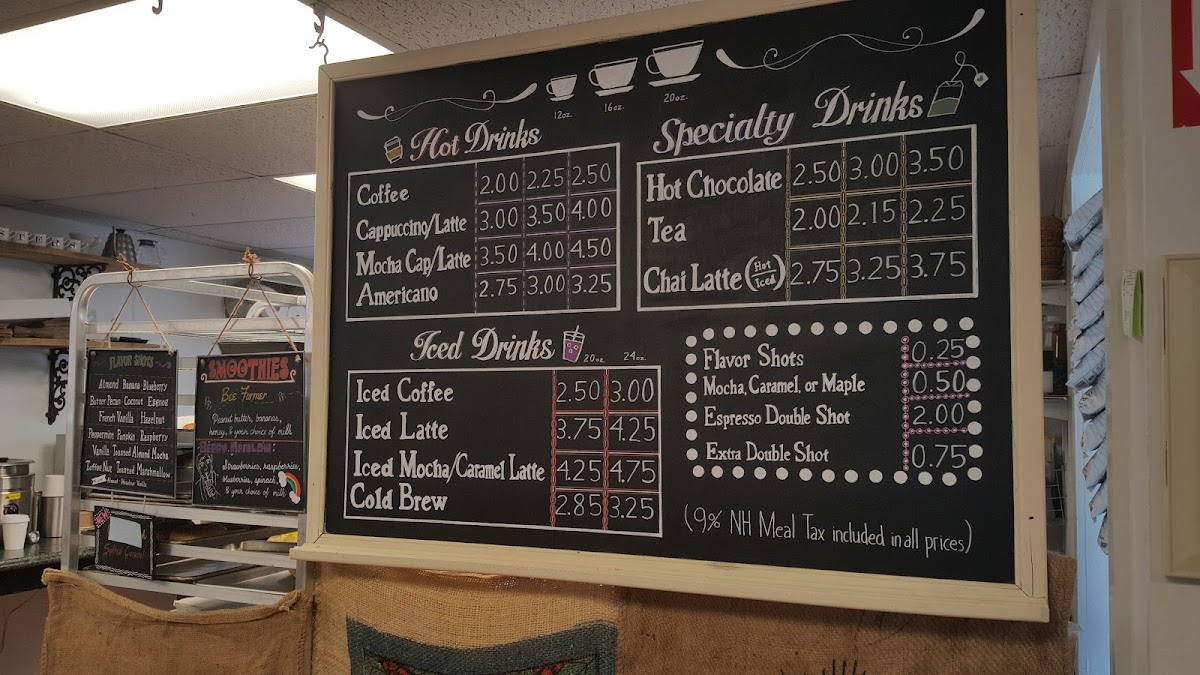 12oz. 16oz. 20oz.
Hot Drinks
Coffee 2.00 2.25 2.50
Cappuccino/Latte 3.00 3.50 4.00
Mocha Cap/Latte 3.50 4.00 4.50
Americano 2.75 3.00 3.25
Specialty Drinks
Hot Chocolate 2.50 3.00 3.50
Tea 2.00 2.15 2.25
Chai Latte (Hot Iced) 2.75 3.25 3.75
Iced Drinks 20oz. 24oz.
Iced Coffee 2.50 3.00
Iced Latte 3.75 4.25
Iced Mocha/Caramel Latte 4.25 4.75
Cold Brew 2.85 3.25
Flavor Shots 0.25
Mocha, Caramel, or Maple 0.50
Espresso Double Shot 2.00
Extra Double Shot 0.75
(9% NH Meal Tax included in all prices)
FLAVOR SHOTS
Almond Banana Blueberry
Butter Pecan Coconut
French Vanilla Hazelnut
Peppermint Pumpkin Raspberry
Vanilla Toasted Almond Mocha
Toffee Nut Toasted Marshmallow
SMOOTHIES
Bee Farmer
Peanut butter, bananas,
honey, & your choice of milk
Strawberries, raspberries,
blueberries, spinach,
& your choice of milk